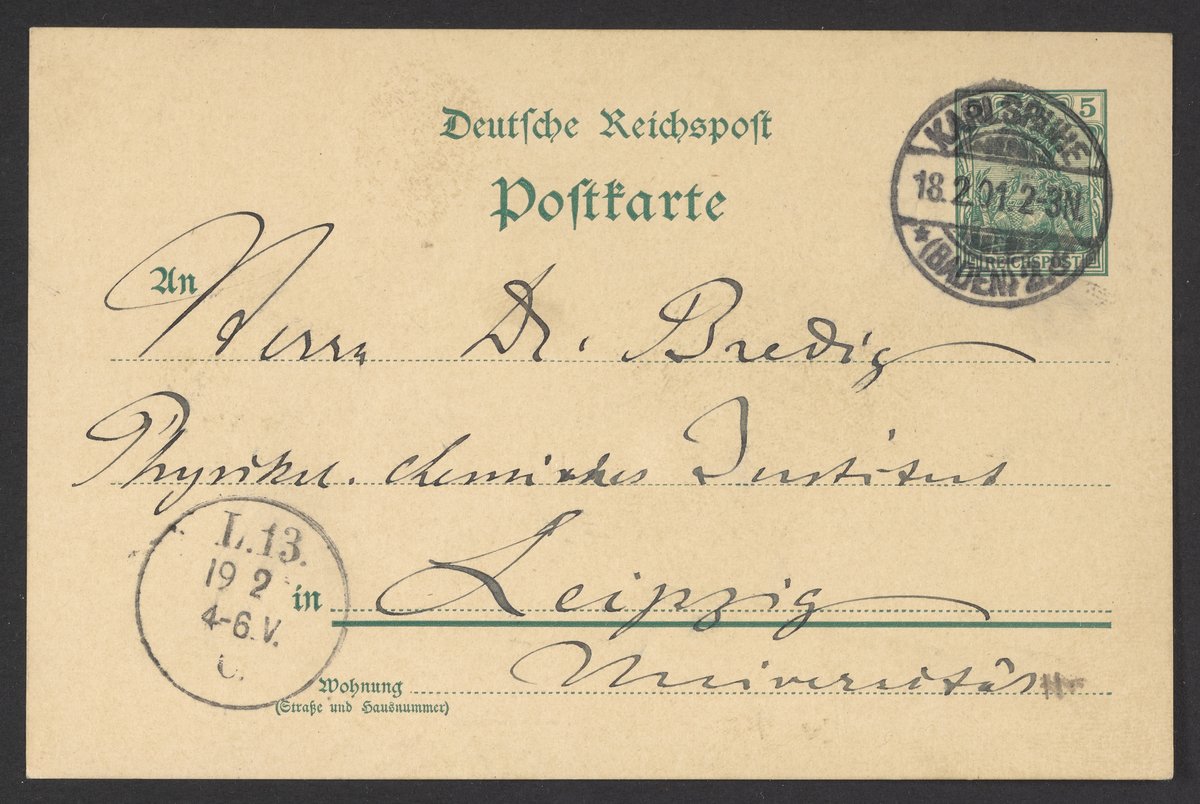 Deutsche Reichspost
5
Postkarte
KARLSRUHE
18.2.01.2-3N.
(BADEN)
REICHSPOST
An Herrn Dr. Bredig
Physikal. chemisches Institut
L.13.
19 2
4-6.V.
in Leipzig
Wohnung Universität
(Straße und Hausnummer)